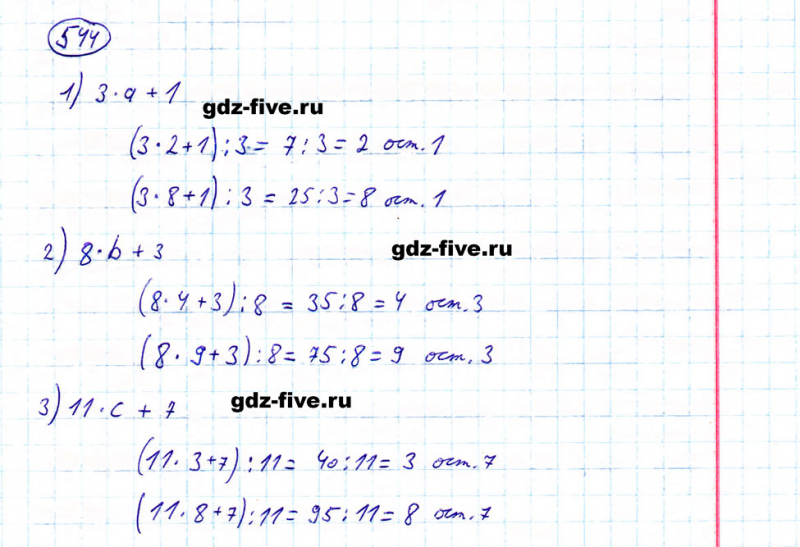 544
1) 3·a + 1
gdz-five.ru
(3·2+1):3 = 7:3 = 2 ост. 1
(3·8+1):3 = 25:3=8 ост. 1
2) 8·b + 3
gdz-five.ru
(8·4+3):8 = 35:8 = 4 ост. 3
(8·9+3):8 = 75:8 = 9 ост. 3
3) 11·c + 7
gdz-five.ru
(11·3+7):11 = 40:11 = 3 ост. 7
(11·8+7):11 = 95:11 = 8 ост. 7